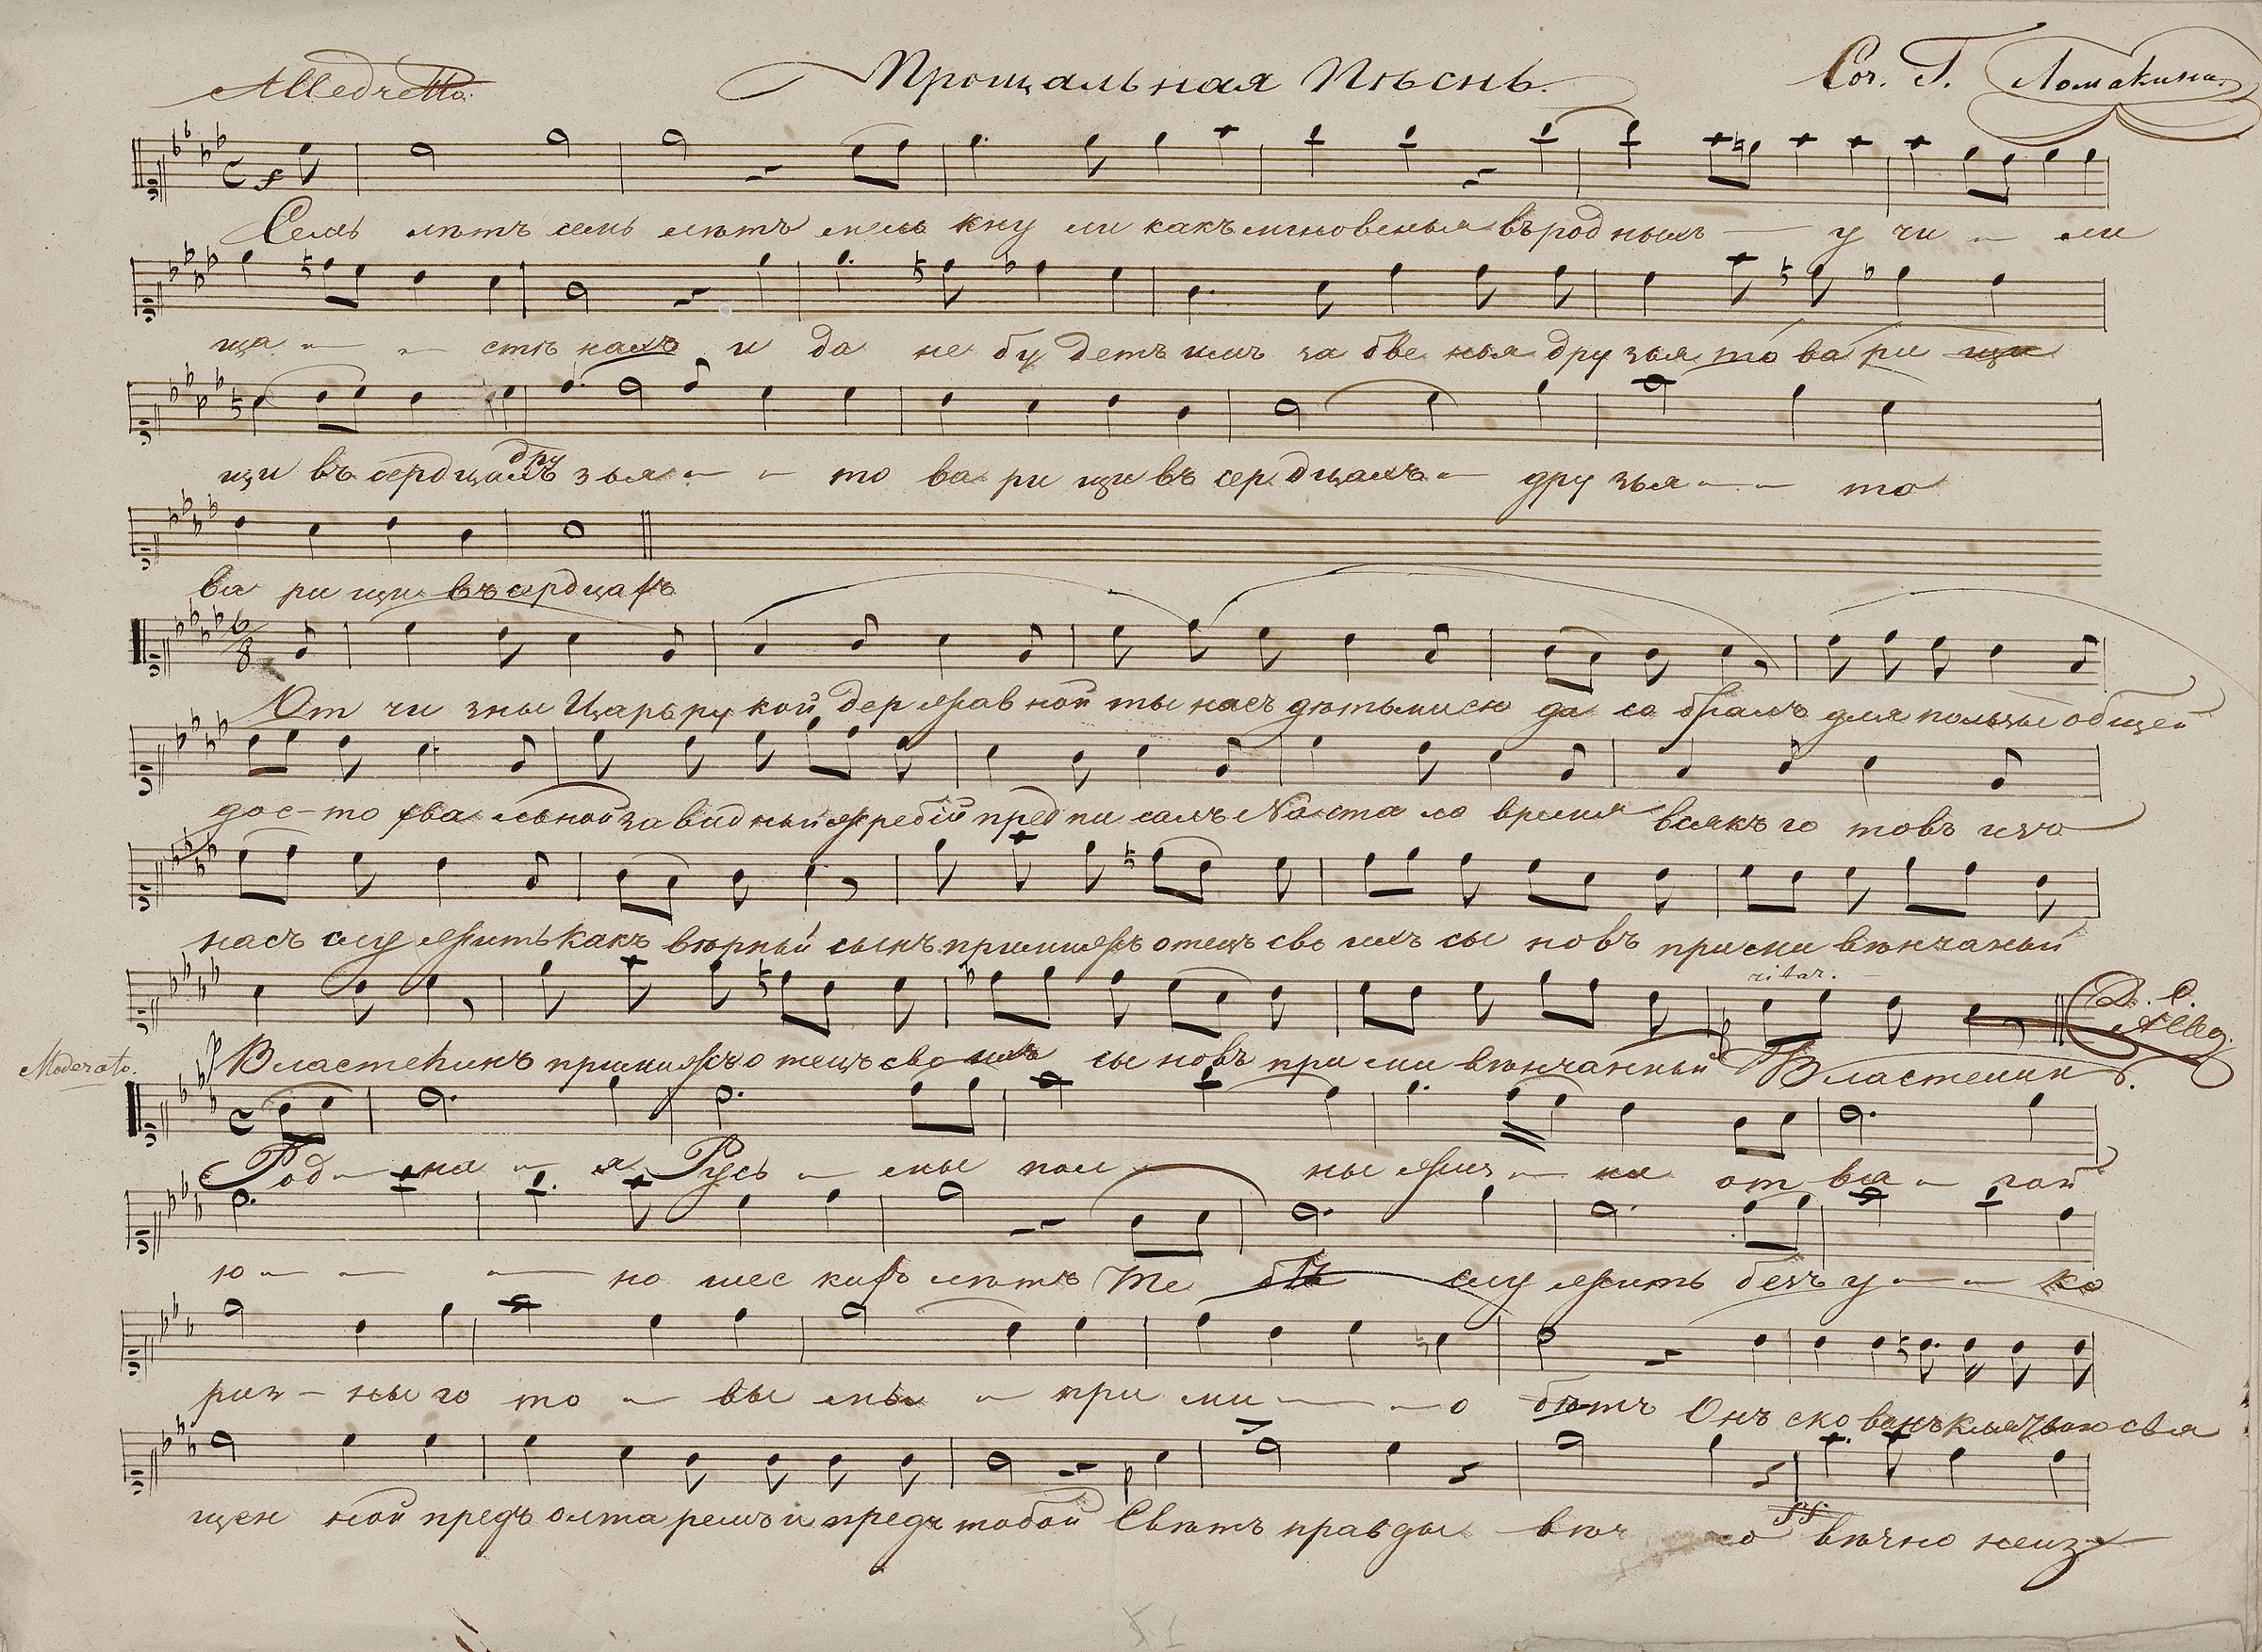 Allegretto. Прощальная Пѣснь. Соч. Г. Ломакина.
Семь лѣтъ семь лѣтъ мель кну ли какъ мгновенья въ род ныхъ — у чи — ли
ща — — стѣ нахъ и да не бу детъ имъ за бве нья дру зья то ва ри щи
щи въ сердцахъ дру зья — — то ва ри щи въ сер дцахъ — дру зья — — то
ва ри щи въ сердцахъ
От чи зны Царь ру кой дер жав ной ты насъ дѣтьми сю да со бралъ для пользы общей
дос-то хва льной за вид ный жребій пред пи салъ На ста ло время всякъ го товъ изъ
насъ слу жить какъ вѣрный сынъ прими жъ отецъ сво ихъ сы новъ при ми вѣнчаный
ritar. D. C. Alleg.
Moderato. Властелинъ прими жъ о тецъ сво ихъ сы новъ при ми вѣнчанный Властелинъ.
Род — на — я Русь — мы пол — ны жиз — ни от ва — гой
ю — — — но шес кихъ лѣтъ Те бѣ слу жить безъ у — — ко
риз — ны го то — вы мы — при ми — — о бѣтъ Онъ ско ванъ клятвою свя
щен ной предъ олта ремъ и предъ тобой Свѣтъ правды вѣч но ff. вѣчно неиз